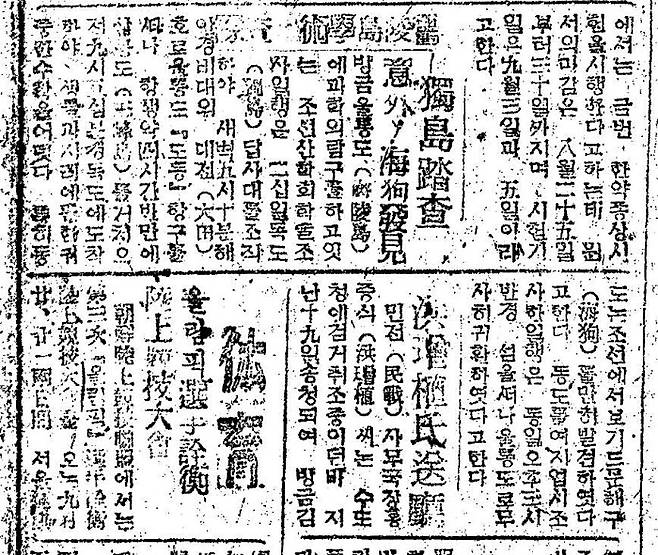 에서는 금번 한약종상시
험을시행한다고하는데 원
서의마감은 八月二十五일
부터三十일까지며 시험기
일은九月三일과 五일이라
고한다
鬱陵島學術
獨島踏査
意外! 海狗發見
방금울릉도(鬱陵島)
에과학의탐구를하고잇
는 조선산악회학술조
사일행은 二十일독도
(獨島) 답사대를조직
하야 새벽五시十분해
안경비대원 대전(大田)
호로울릉도『도동』항구를
떠나 항행약四시간반만에
를거치
전九시四十분경독도에도착
하야 생물과사례에
중한수확을어덧다 특히동
도는조선에서보기드문해구
(海狗)를만히발견하엿다
고한다 동도를여지업시조
사한일행은 동일오후三시
반경 섬을떠나울릉도로무
사히귀환하엿다고한다
洪璔植氏送廳
민전(民戰)사무국장홍
증식(洪璔植)씨는 수도
청에검거취조중이던바 지
난十九일송청되여 방금김
体育
올림픽選手詮衡
陸上競技大會
朝鮮陸上競技聯盟에서는
第二次『올림픽』選手詮衡
陸上競技大會를 오는九月
廿、廿一兩日間 서울